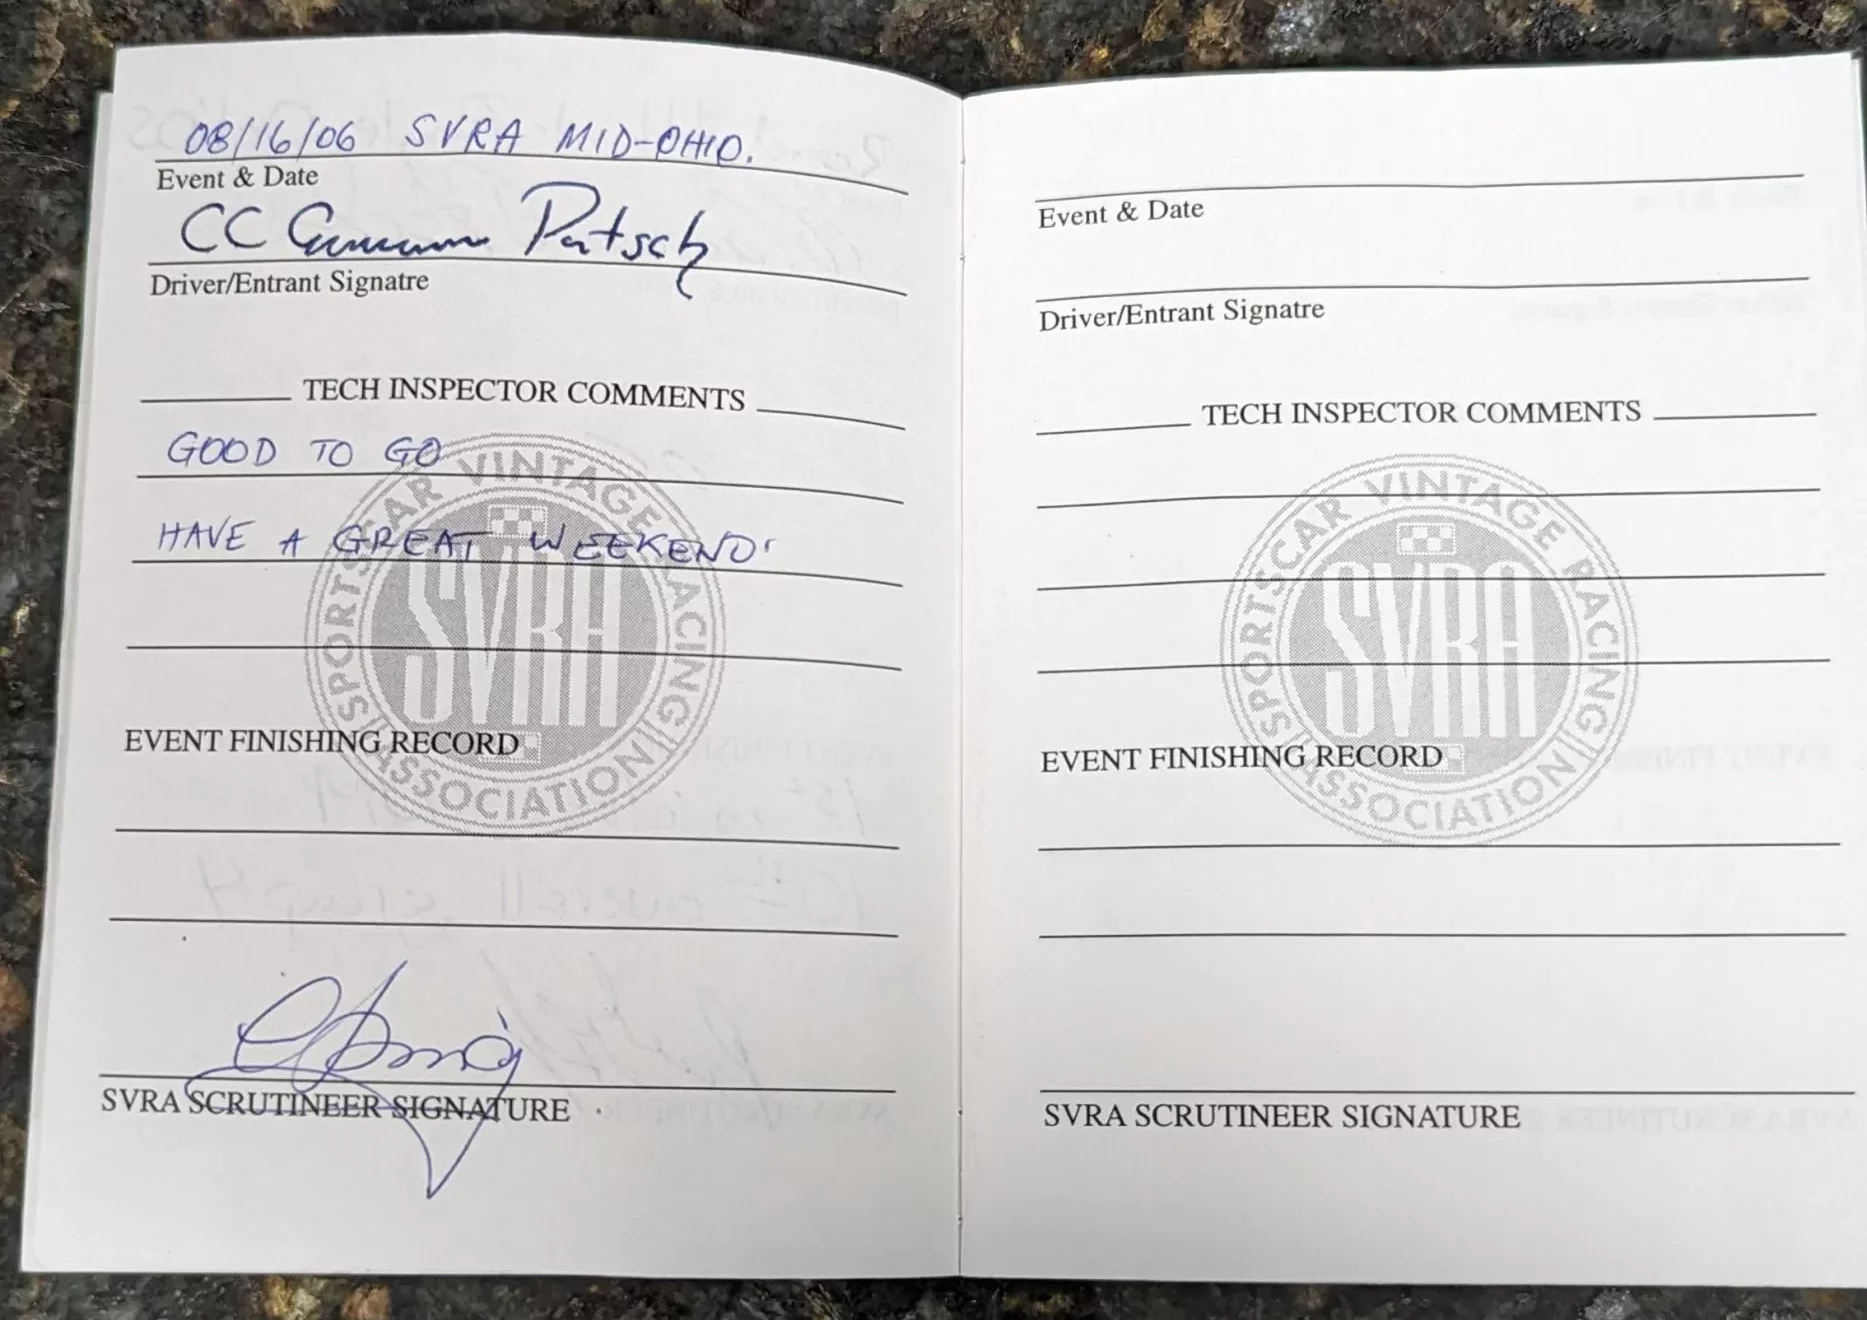 08/16/06 SVRA MID-OHIO.
Event & Date
CC
Driver/Entrant Signatre
TECH INSPECTOR COMMENTS
GOOD TO GO
HAVE A GREAT WEEKEND!
SPORTSCAR VINTAGE RACING ASSOCIATION
SVRA
EVENT FINISHING RECORD
SVRA SCRUTINEER SIGNATURE
Event & Date
Driver/Entrant Signatre
TECH INSPECTOR COMMENTS
SPORTSCAR VINTAGE RACING ASSOCIATION
SVRA
EVENT FINISHING RECORD
SVRA SCRUTINEER SIGNATURE